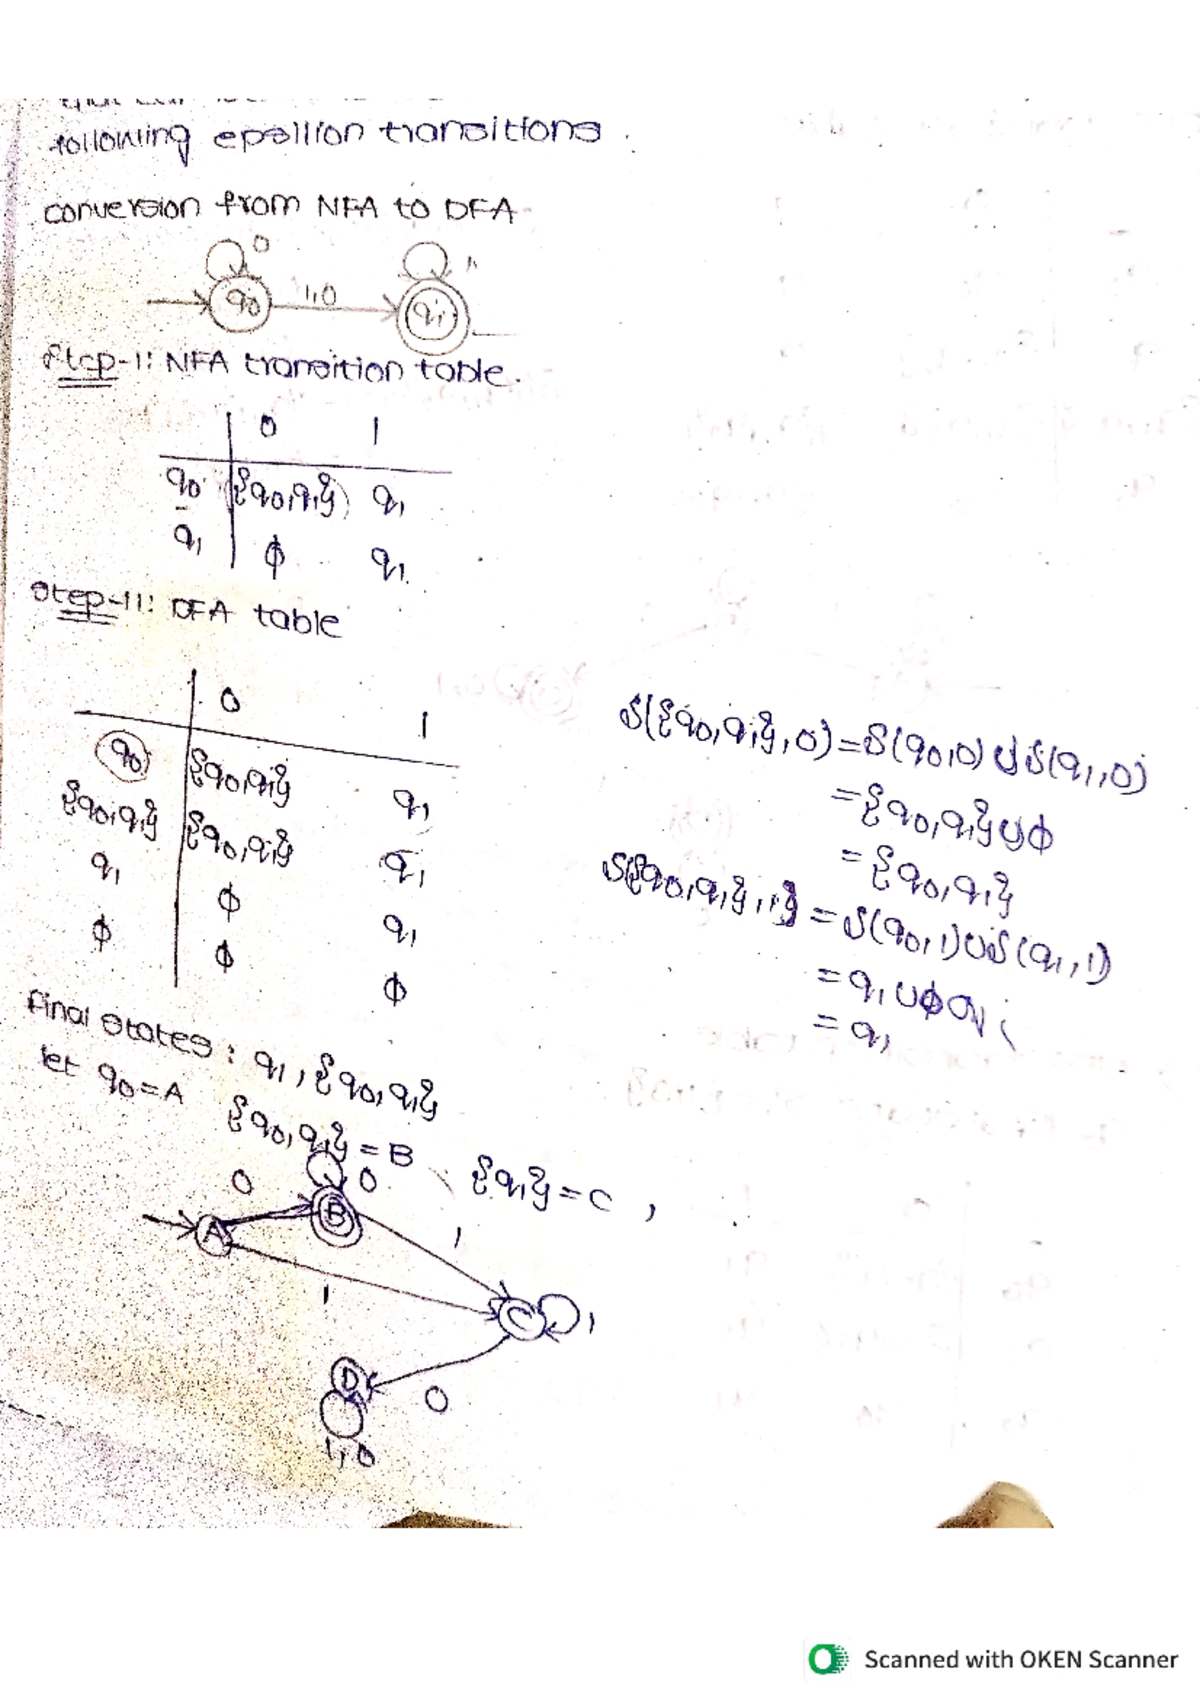 following epsilion transitions .
conversion from NFA to DFA
0 1
q0 1,0 q1
Step-1: NFA transition table.
0 1
q0 {q0,q1} q1
q1 ϕ q1.
Step-11: DFA table
0 1
q0 {q0,q1} q1
{q0,q1} {q0,q1} q1
q1 ϕ q1
ϕ ϕ ϕ
δ({q0,q1},0)=δ(q0,0)∪δ(q1,0)
={q0,q1}∪ϕ
={q0,q1}
δ({q0,q1},1}=δ(q0,1)∪δ(q1,1)
=q1∪
=q1
Final states: q1,{q0,q1}
let q0=A {q0,q1}=B {q1}=C ,
0 B 0
A 1
1 C 1
D 0
1,0
Scanned with OKEN Scanner